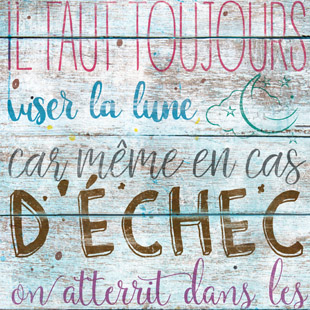 IL FAUT TOUJOURS
viser la lune
car même en cas
D'ÉCHEC
on atterrit dans les